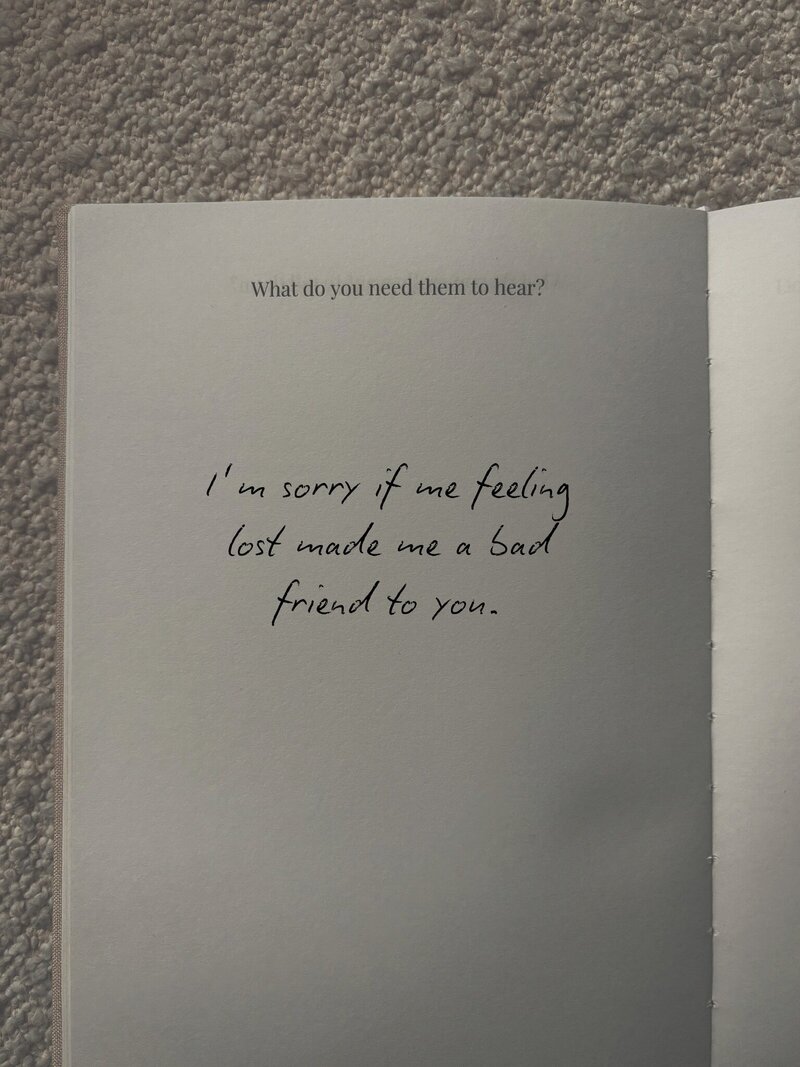 What do you need them to hear?
I'm sorry if me feeling
lost made me a bad
friend to you.